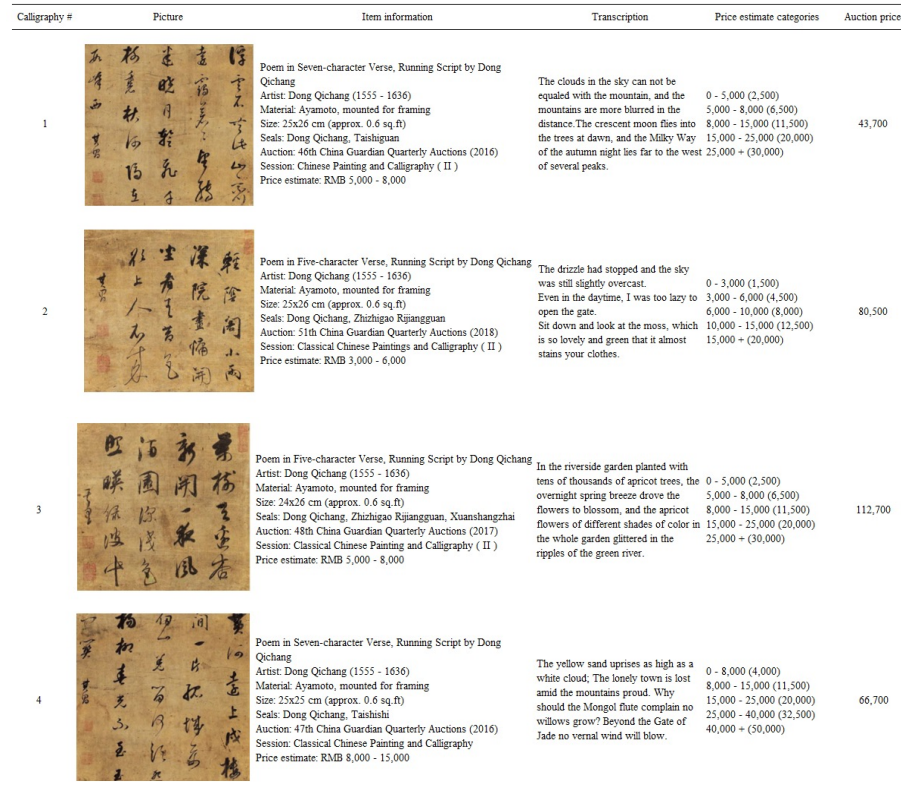 Calligraphy #
Picture
Item information
Transcription
Price estimate categories
Auction price
1
浮雲不共此山齊
靄蒼〻望轉
迷曉月暫飛千
樹裏秋河隔在
數峯西 其昌
Poem in Seven-character Verse, Running Script by Dong
Qichang
Artist: Dong Qichang (1555 - 1636)
Material: Ayamoto, mounted for framing
Size: 25x26 cm (approx. 0.6 sq.ft)
Seals: Dong Qichang, Taishiguan
Auction: 46th China Guardian Quarterly Auctions (2016)
Session: Chinese Painting and Calligraphy ( II )
Price estimate: RMB 5,000 - 8,000
The clouds in the sky can not be
equaled with the mountain, and the
mountains are more blurred in the
distance.The crescent moon flies into
the trees at dawn, and the Milky Way
of the autumn night lies far to the west
of several peaks.
0 - 5,000 (2,500)
5,000 - 8,000 (6,500)
8,000 - 15,000 (11,500)
15,000 - 25,000 (20,000)
25,000 + (30,000)
43,700
2
輕陰閣小雨
深院晝慵開
坐看蒼苔色
欲上人衣來
其昌
Poem in Five-character Verse, Running Script by Dong Qichang
Artist: Dong Qichang (1555 - 1636)
Material: Ayamoto, mounted for framing
Size: 25x26 cm (approx. 0.6 sq.ft)
Seals: Dong Qichang, Zhizhigao Rijiangguan
Auction: 51th China Guardian Quarterly Auctions (2018)
Session: Classical Chinese Paintings and Calligraphy ( II )
Price estimate: RMB 3,000 - 6,000
The drizzle had stopped and the sky
was still slightly overcast.
Even in the daytime, I was too lazy to
open the gate.
Sit down and look at the moss, which
is so lovely and green that it almost
stains your clothes.
0 - 3,000 (1,500)
3,000 - 6,000 (4,500)
6,000 - 10,000 (8,000)
10,000 - 15,000 (12,500)
15,000 + (20,000)
80,500
3
萬樹江邊杏
新開一夜風
滿園深淺色
照映綠波中
Poem in Five-character Verse, Running Script by Dong Qichang
Artist: Dong Qichang (1555 - 1636)
Material: Ayamoto, mounted for framing
Size: 24x26 cm (approx. 0.6 sq.ft)
Seals: Dong Qichang, Zhizhigao Rijiangguan, Xuanshangzhai
Auction: 48th China Guardian Quarterly Auctions (2017)
Session: Classical Chinese Painting and Calligraphy ( II )
Price estimate: RMB 5,000 - 8,000
In the riverside garden planted with
tens of thousands of apricot trees, the
overnight spring breeze drove the
flowers to blossom, and the apricot
flowers of different shades of color in
the whole garden glittered in the
ripples of the green river.
0 - 5,000 (2,500)
5,000 - 8,000 (6,500)
8,000 - 15,000 (11,500)
15,000 - 25,000 (20,000)
25,000 + (30,000)
112,700
4
黃河遠上戍樓
間一片孤城萬
楊柳春光不
其昌
Poem in Seven-character Verse, Running Script by Dong
Qichang
Artist: Dong Qichang (1555 - 1636)
Material: Ayamoto, mounted for framing
Size: 25x25 cm (approx. 0.6 sq.ft)
Seals: Dong Qichang, Taishishi
Auction: 47th China Guardian Quarterly Auctions (2016)
Session: Classical Chinese Painting and Calligraphy
Price estimate: RMB 8,000 - 15,000
The yellow sand uprises as high as a
white cloud; The lonely town is lost
amid the mountains proud. Why
should the Mongol flute complain no
willows grow? Beyond the Gate of
Jade no vernal wind will blow.
0 - 8,000 (4,000)
8,000 - 15,000 (11,500)
15,000 - 25,000 (20,000)
25,000 - 40,000 (32,500)
40,000 + (50,000)
66,700